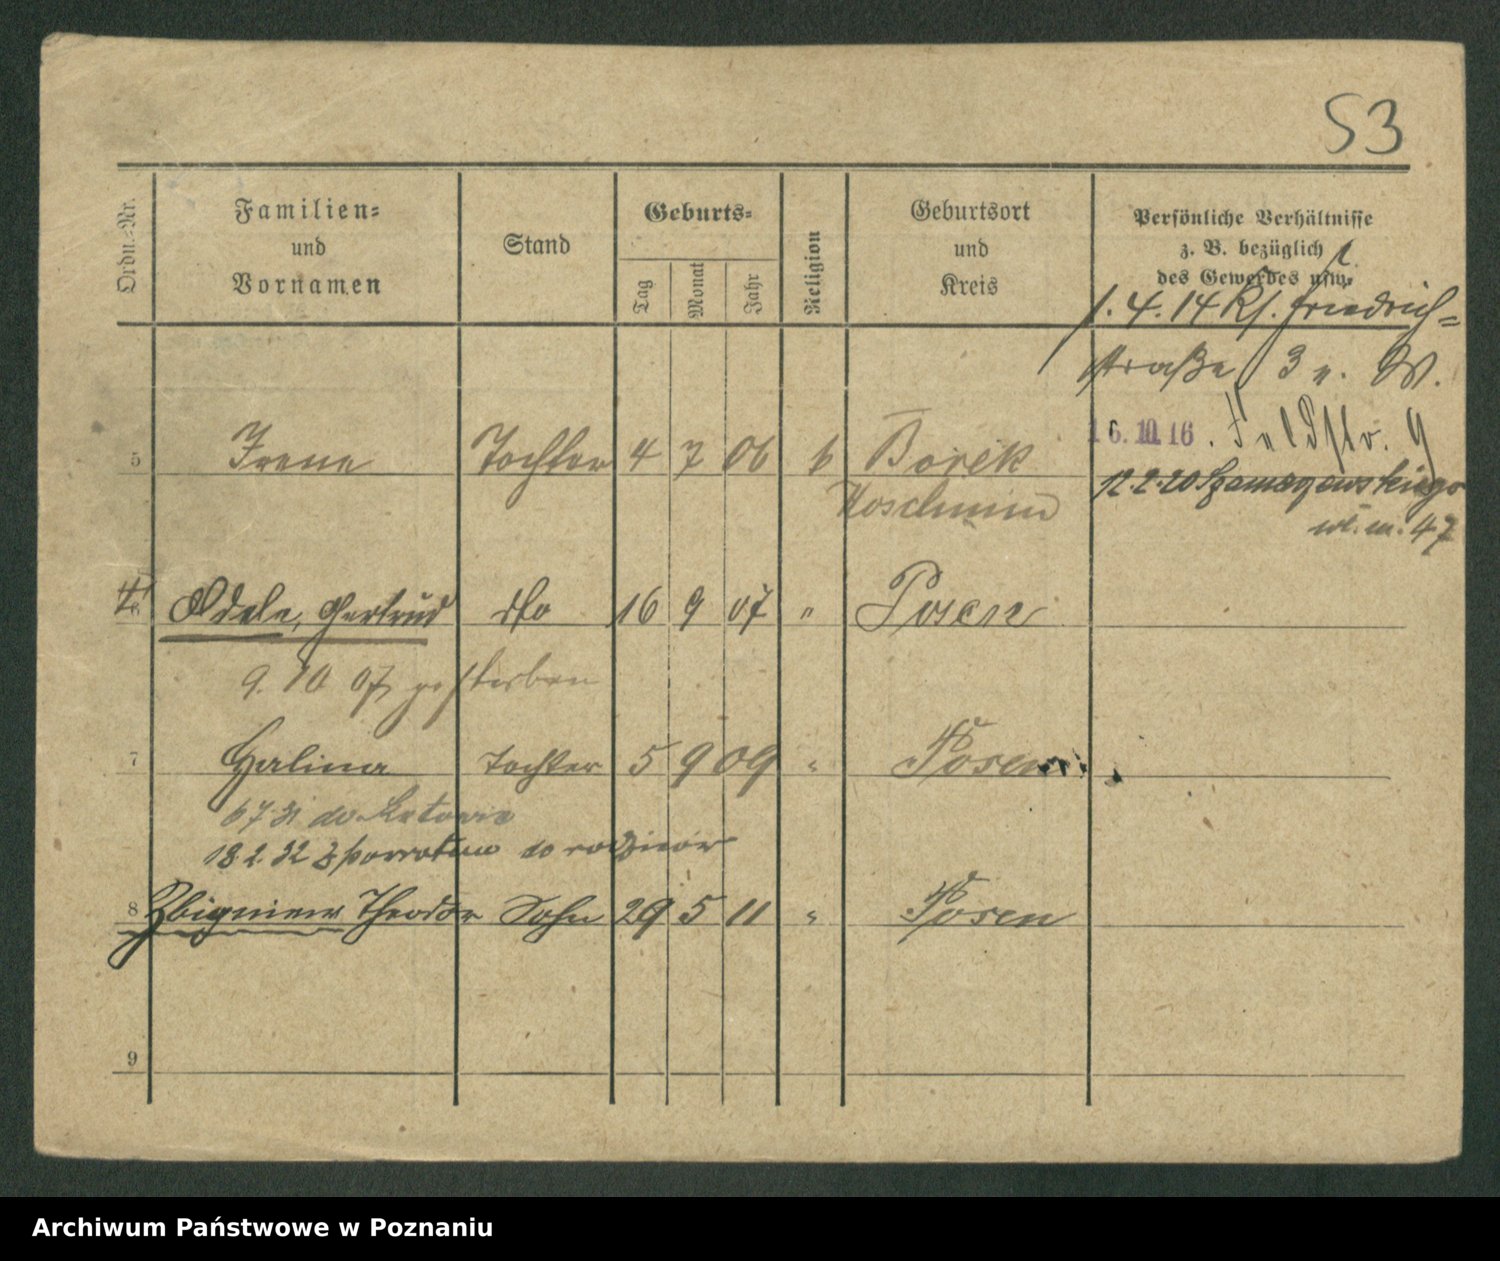 53
Ordn.-Nr.
Familien-
und
Vornamen
Stand
Geburts-
Tag
Monat
Jahr
Religion
Geburtsort
und
Kreis
Persönliche Verhältnisse
z. B. bezüglich
des Gewerbes usw.
1. 4. 14 Kl. Friedrich-
straße 3 n. W.
16.10.16. Feldstr. 9
5 Irene Tochter 4 7 06 k Borek
12.2.20 Szamarzewskiego
Koschmin
47
6 Adele, Gertrud do 16 9 07 " Posen
9. 10 07 gestorben
7 Halina Tochter 5 9 09 " Posen
6 7 31 do
18 2. 32 z powrotem do rodziców
8 Zbigniew Theodor Sohn 29 5 11 " Posen
9
Archiwum Państwowe w Poznaniu